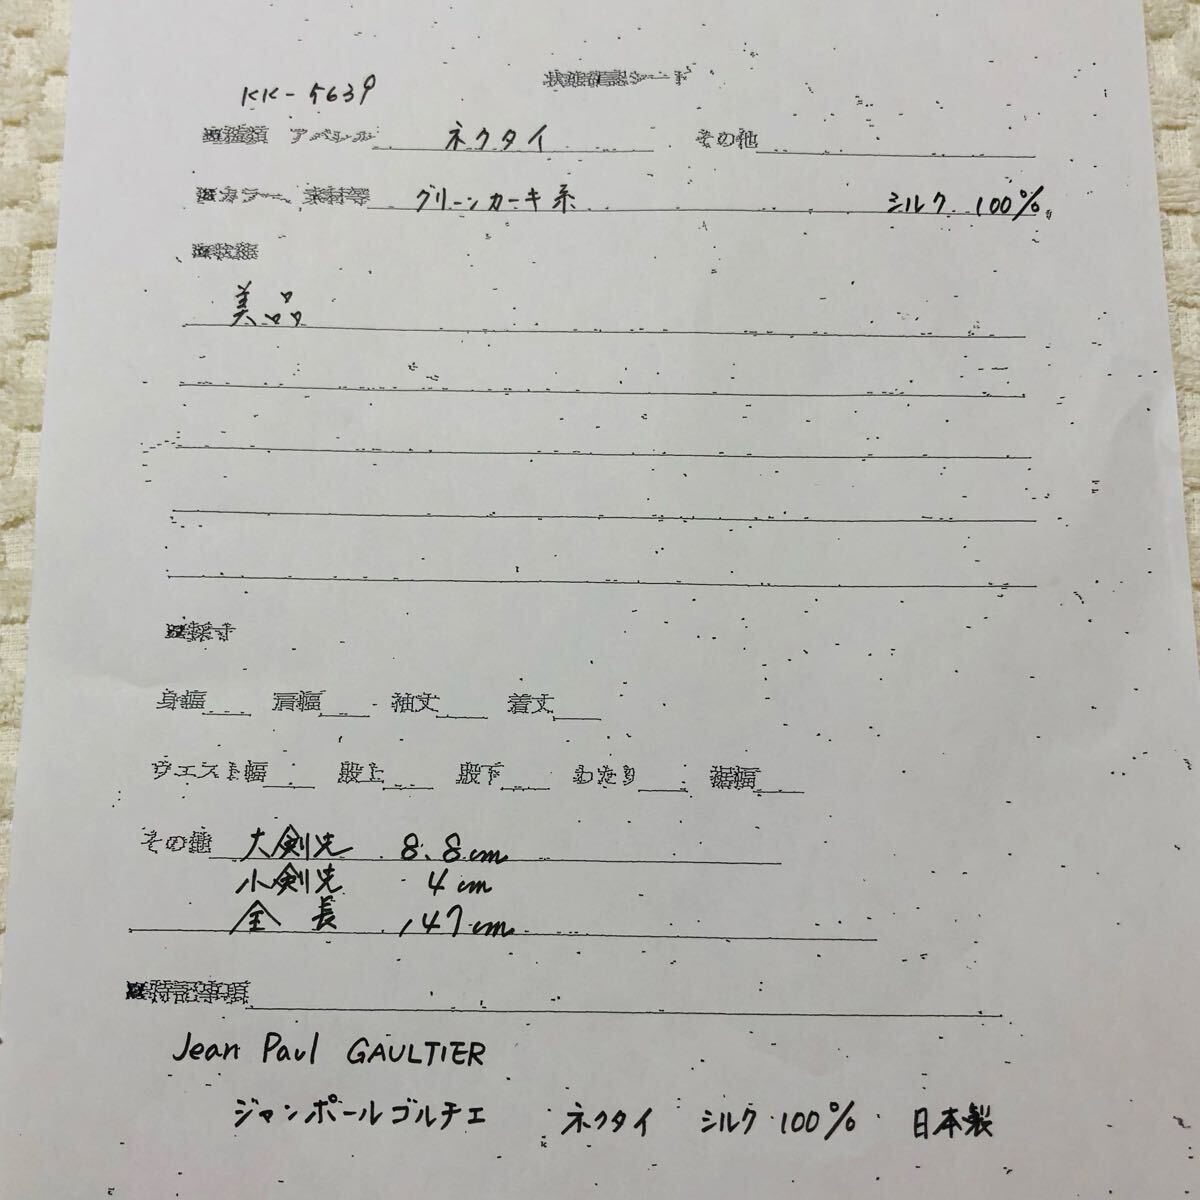 状態確認シート
KK-5639
※種類 アパレル ネクタイ その他
※カラー、素材等 グリーンカーキ系 シルク 100%
※状態
美品
※採寸
身幅 肩幅 袖丈 着丈
ウエスト幅 股上 股下 わたり 裾幅
その他 大剣先 8.8cm
小剣先 4cm
全長 147cm
※特記事項
Jean Paul GAULTIER
ジャンポールゴルチエ ネクタイ シルク 100% 日本製